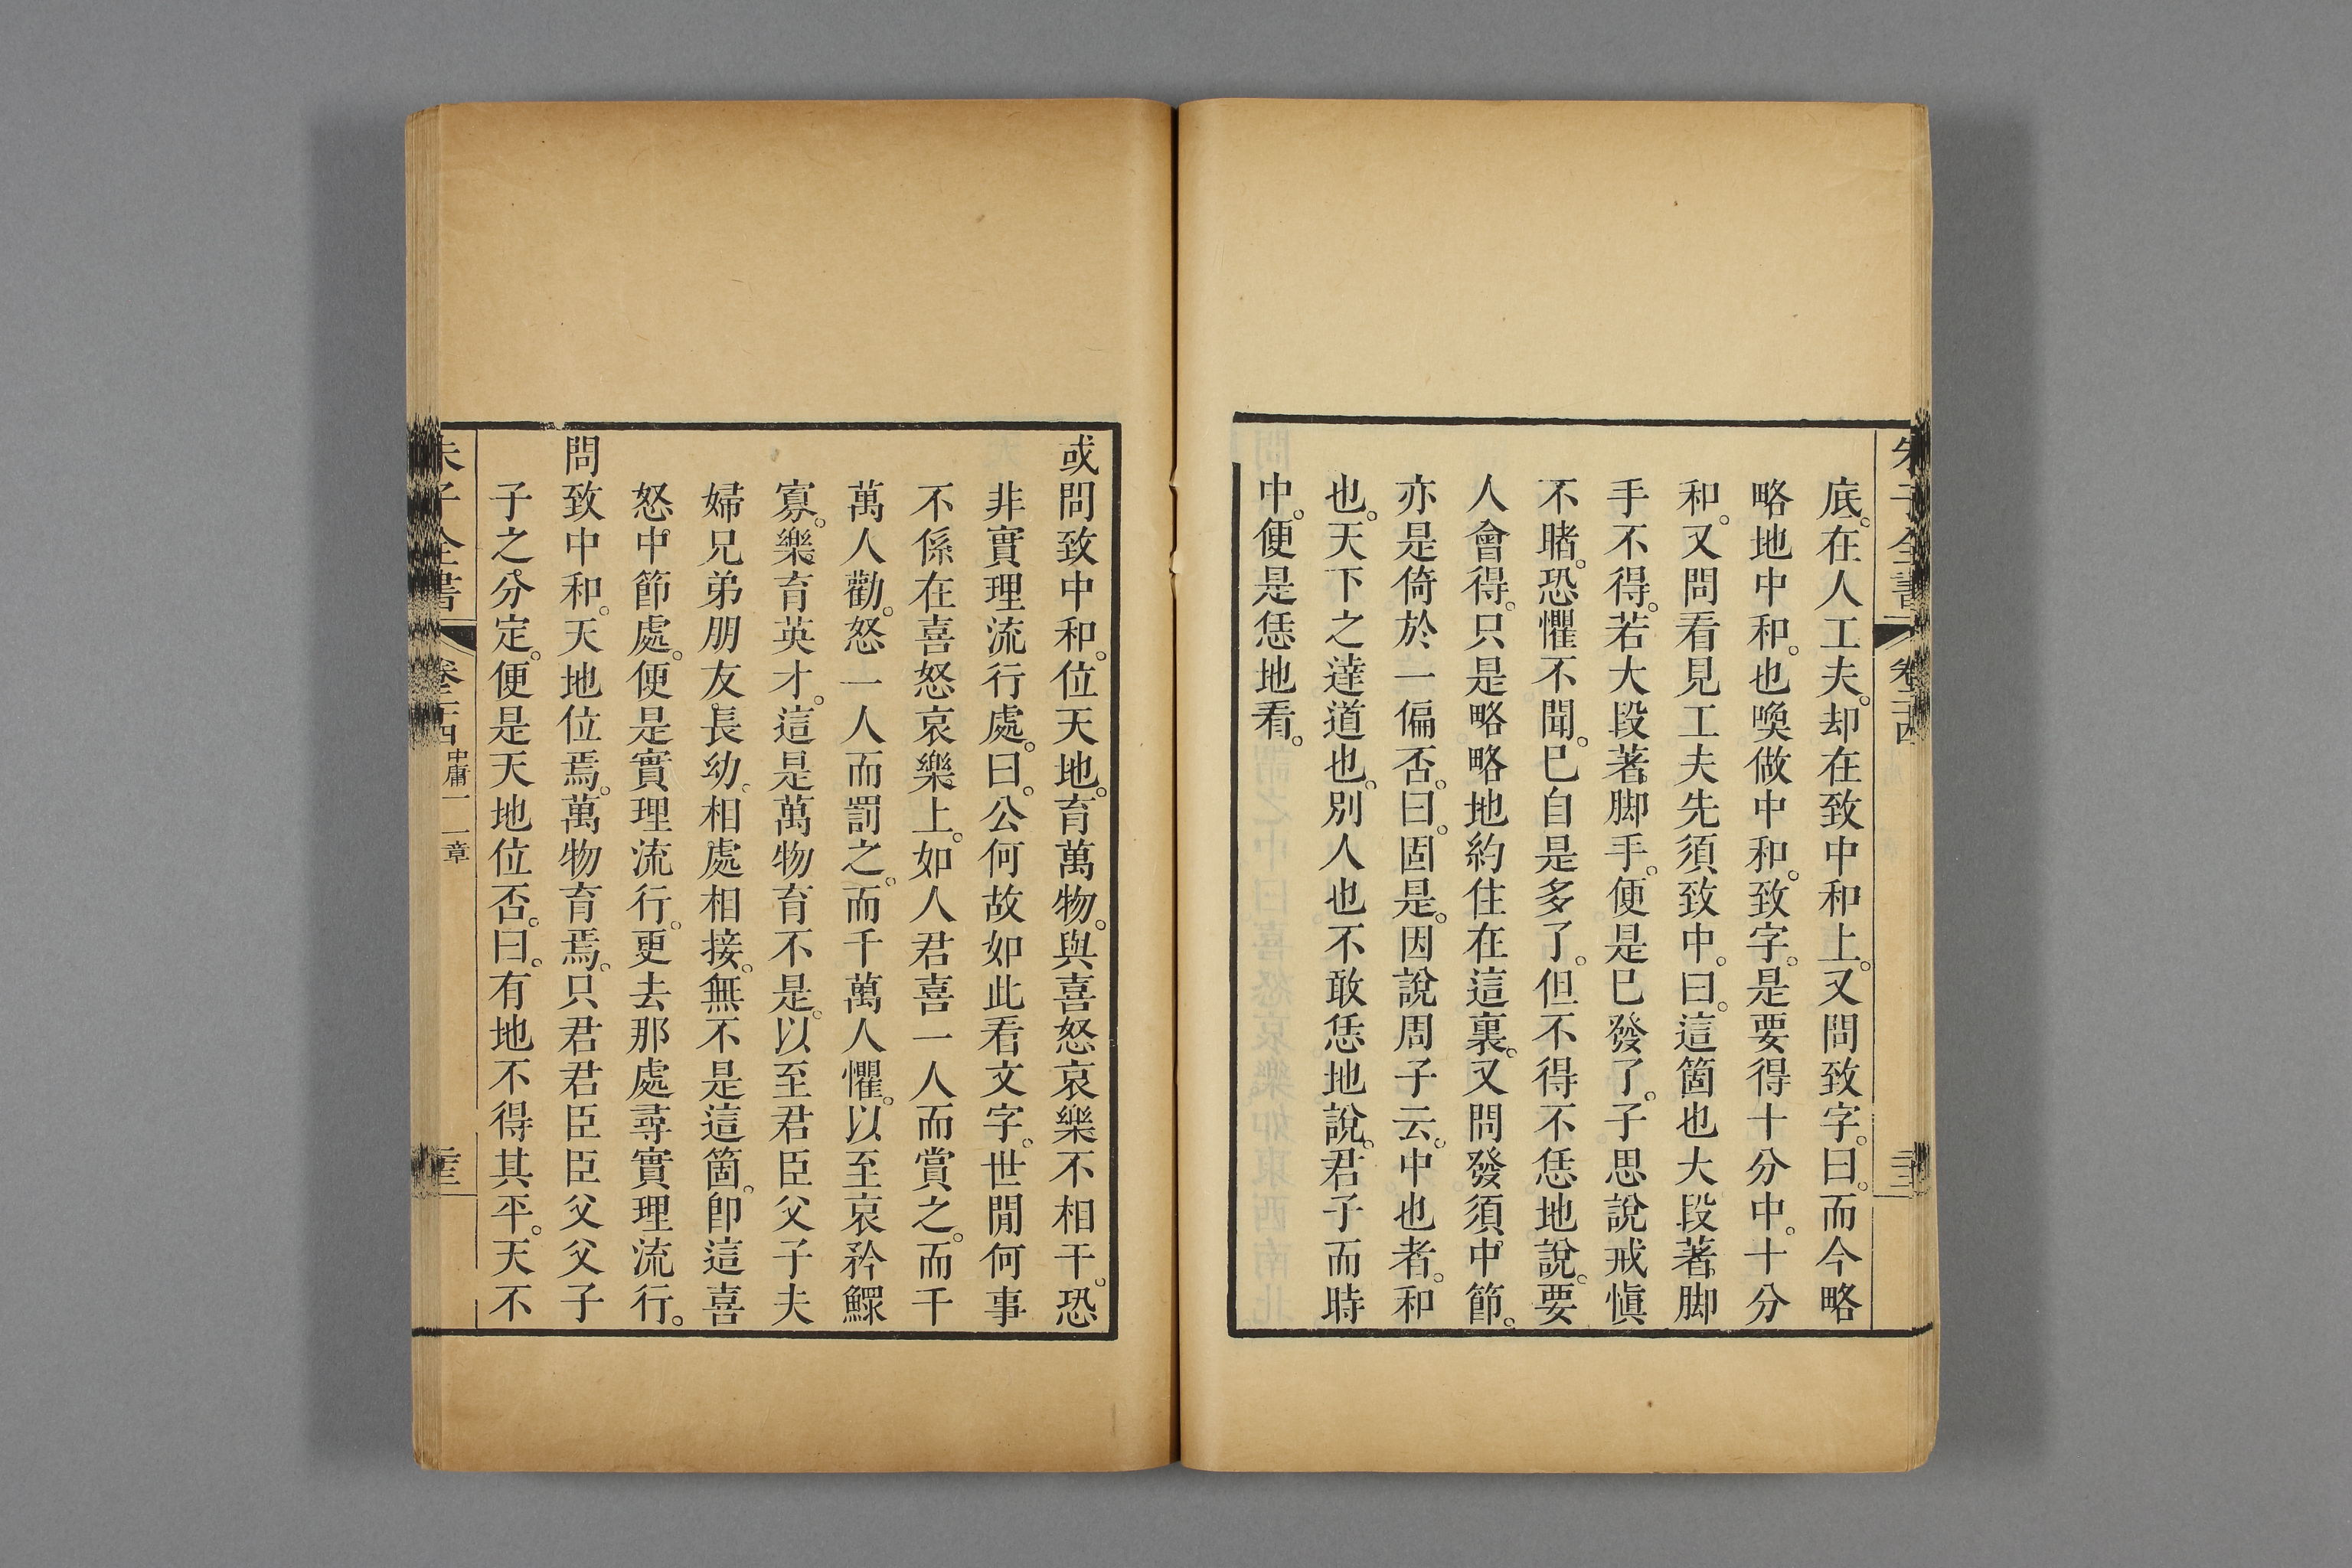 朱子全書 卷二十四
底。在人工夫。却在致中和上。又問致字。曰。而今略
略地中和。也喚做中和。致字。是要得十分中。十分
和。又問看見工夫先須致中。曰。這箇也大段著脚
手不得。若大段著脚手。便是已發了。子思說戒愼
不睹。恐懼不聞。已自是多了。但不得不恁地說。要
人會得。只是略略地約住在這裏。又問發須中節。
亦是倚於一偏否。曰。固是。因說周子云。中也者。和
也。天下之達道也。別人也不敢恁地說。君子而時
中。便是恁地看。
或問致中和。位天地。育萬物。與喜怒哀樂不相干。恐
非實理流行處。曰。公何故如此看文字。世閒何事
不係在喜怒哀樂上。如人君喜一人而賞之。而千
萬人勸。怒一人而罰之。而千萬人懼。以至哀矜鰥
寡。樂育英才。這是萬物育不是。以至君臣父子夫
婦兄弟朋友長幼。相處相接。無不是這箇。卽這喜
怒中節處。便是實理流行。更去那處尋實理流行。
問致中和。天地位焉。萬物育焉。只君君臣臣父父子
子之分定。便是天地位否。曰。有地不得其平。天不
朱子全書 卷二十四 中庸一 一章